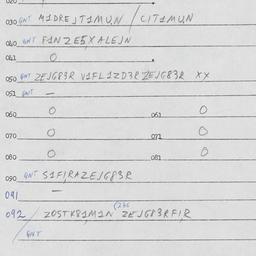 020
030 GNT M1DREJT1MUN / C1T1MUN
040 GNT F1NZE5XALEJN
041 0
050 GNT ZEJG83R V1FL1ZD3RZEJG83R XX
051 GNT –
060 0 061 0
070 0 071 0
080 0 081 0
090 GNT S1F1RAZEJG83R
091 –
092 / ZOSTK81M1N ZEJG83RF1R
GNT